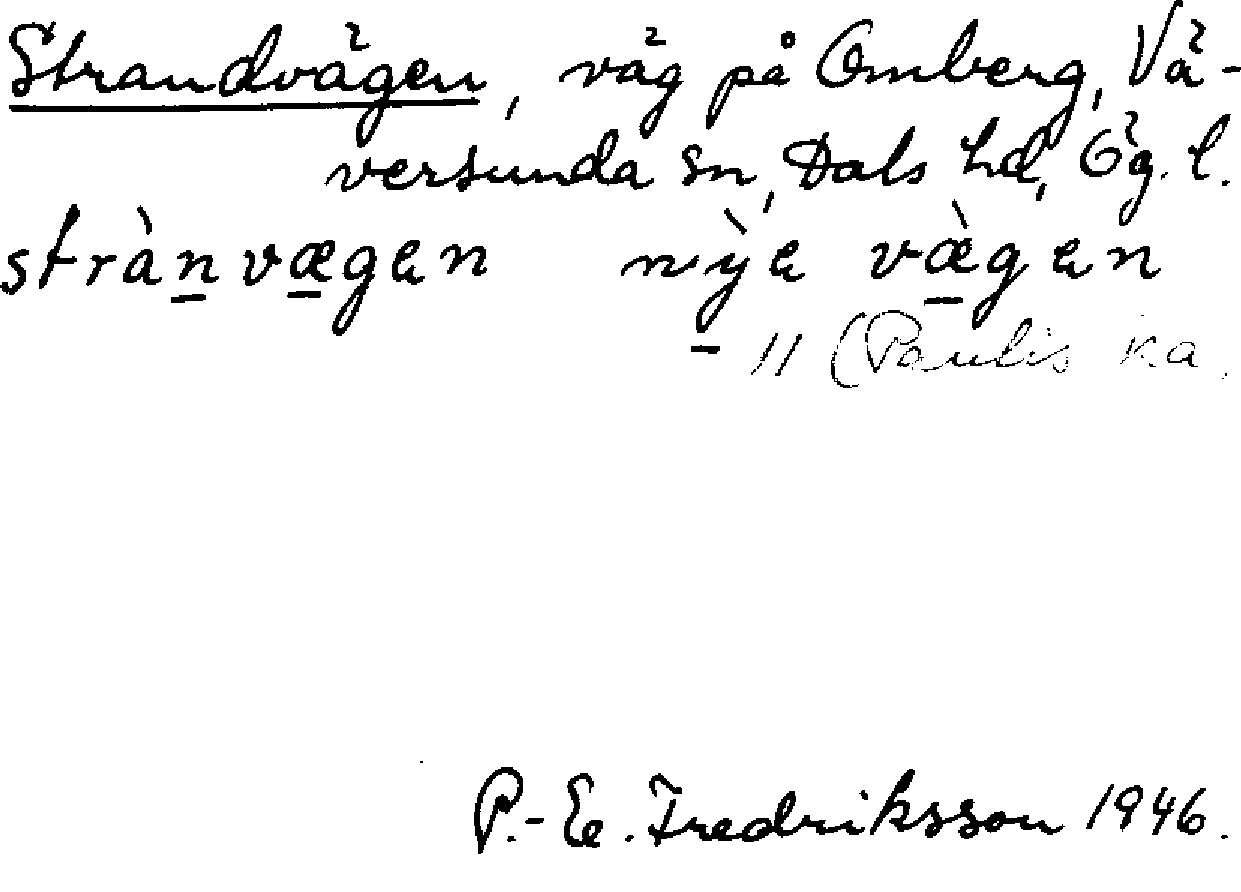 Strandvägen, väg på Omberg, Vä-
versunda sn, Dals hd, Ög. l.
strànvægen nỳe væ̀gen
11 (Paulis ka.
P.-E. Fredriksson 1946.